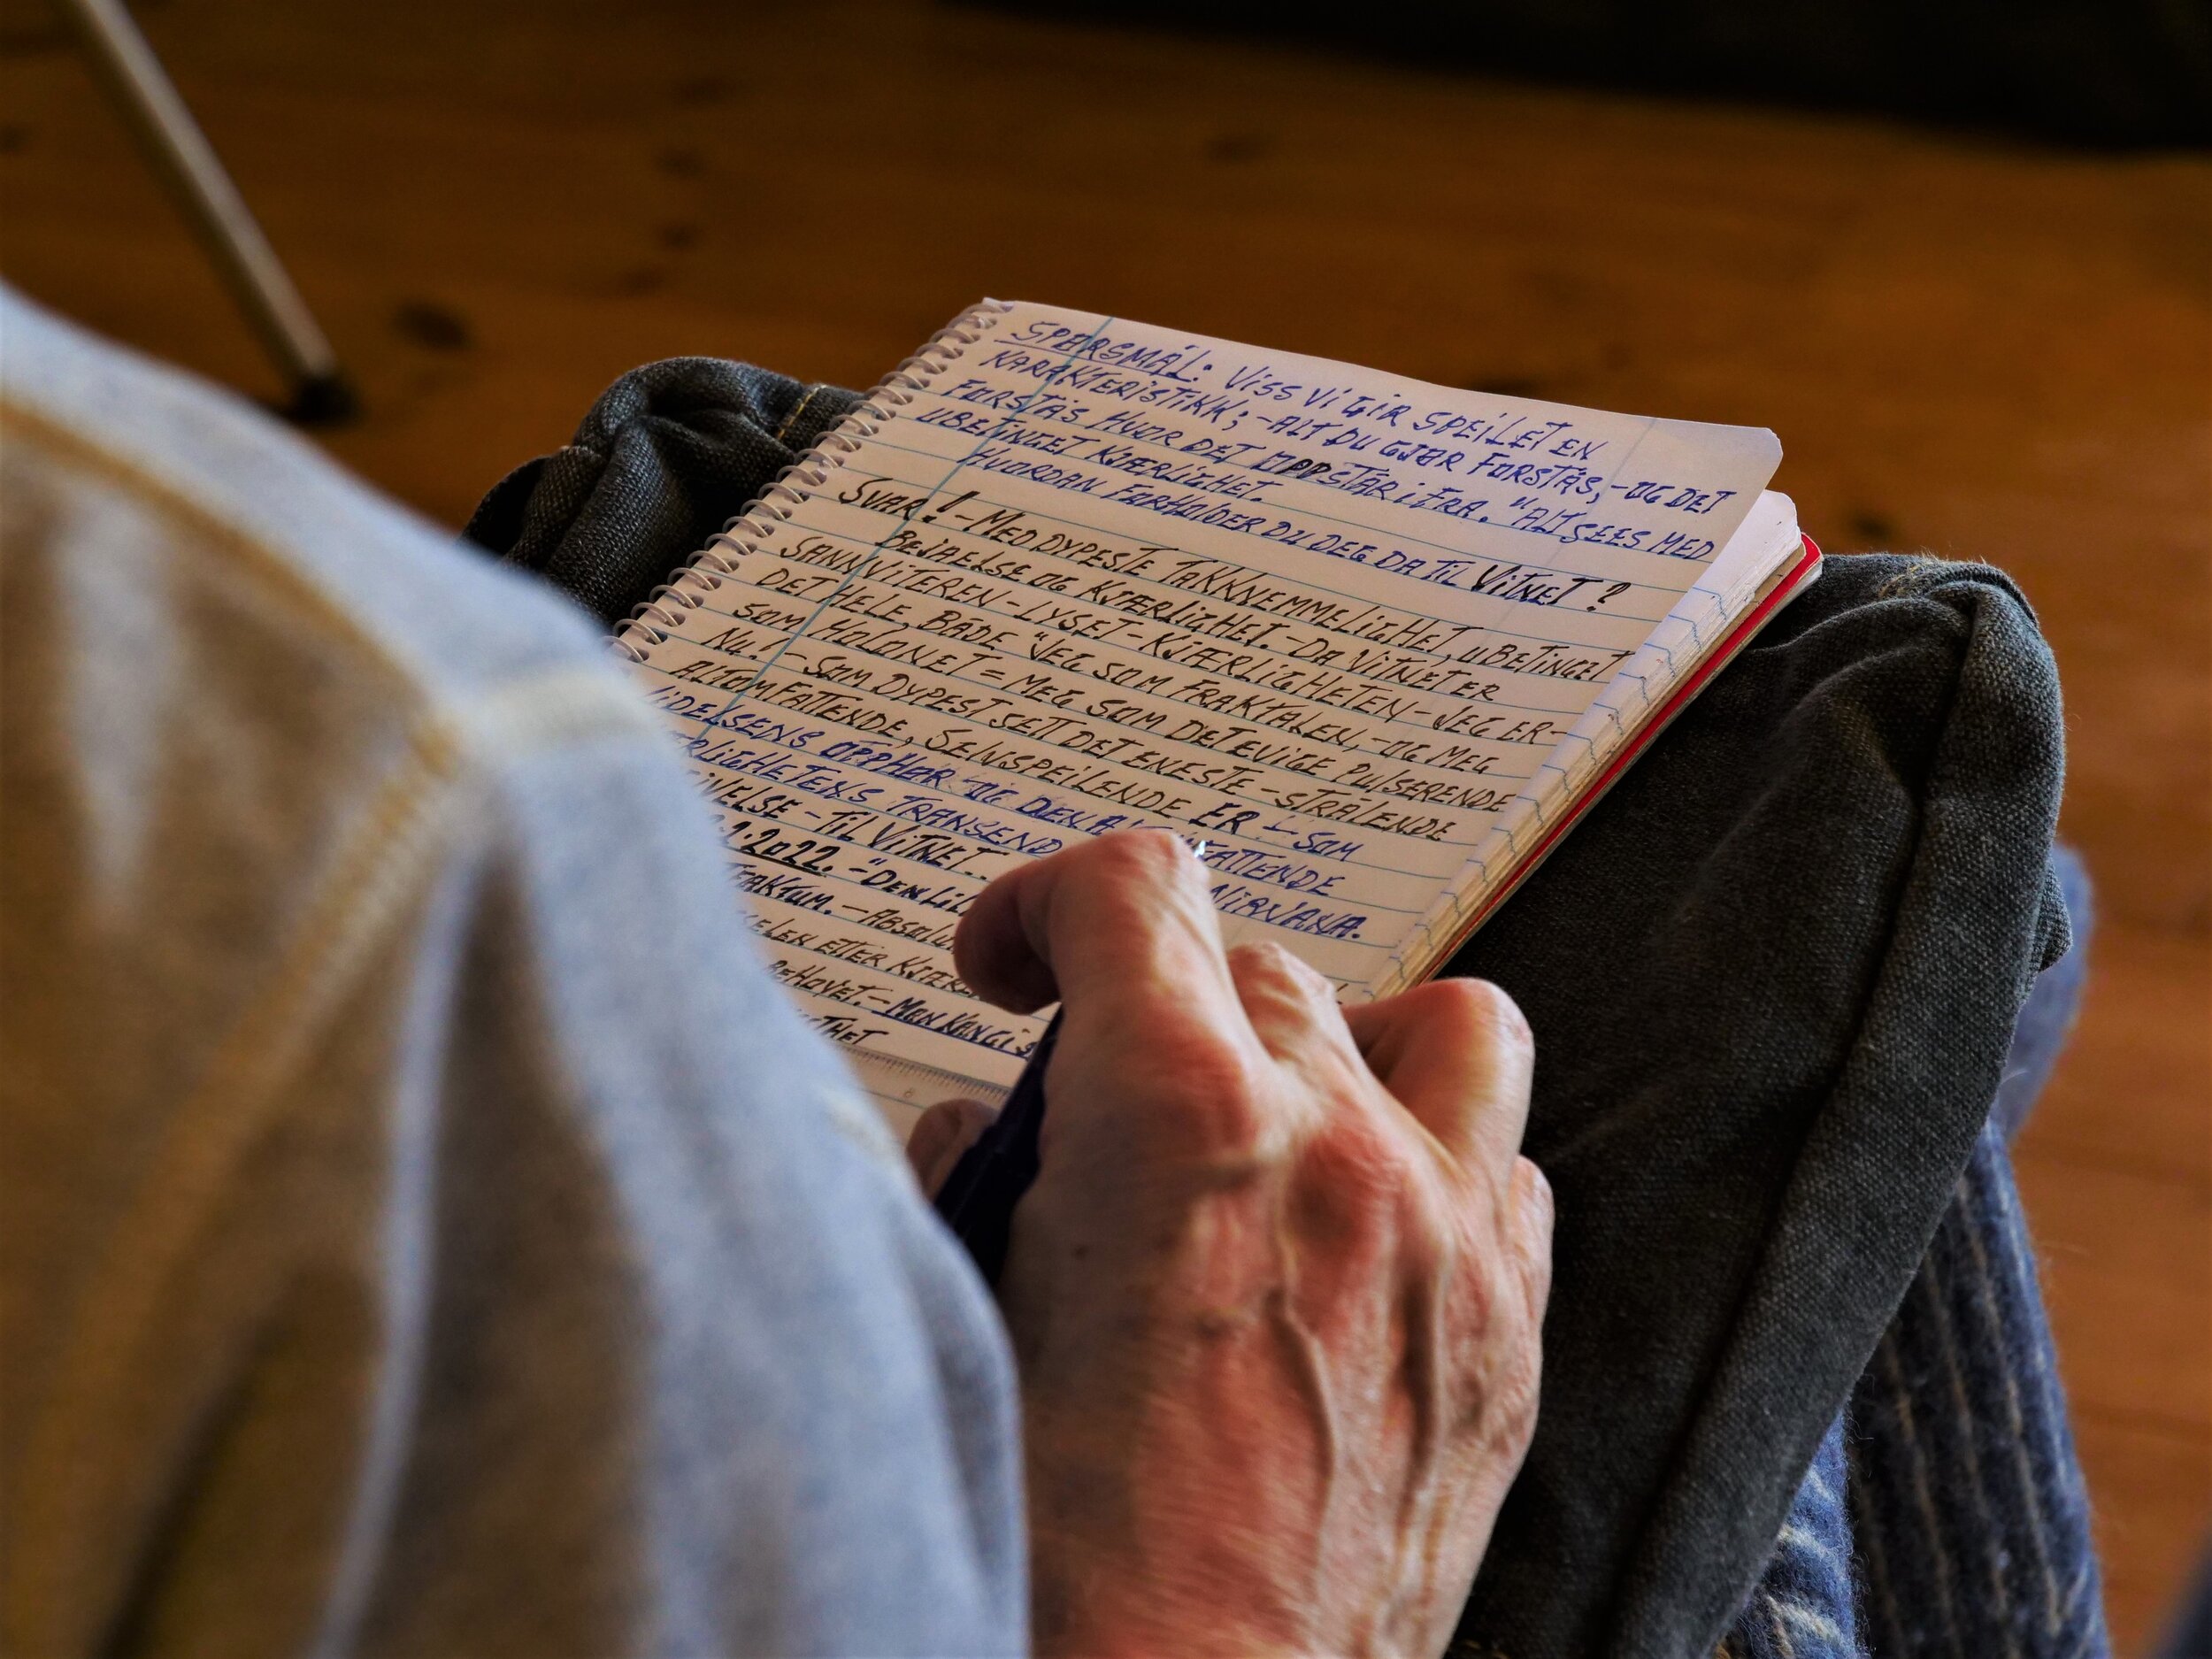 SPØRSMÅL: VISS VI GIR SPEILET EN
KARAKTERISTIKK; -ALT DU GJØR FORSTÅS, -OG DET
FORSTÅS HVOR DET OPPSTÅR IFRA. "ALT SEES MED
UBETINGET KJÆRLIGHET.
HVORDAN FORHOLDER DU DEG DA TIL VITNET?
SVAR! -MED DYPESTE TAKKNEMMELIGHET, UBETINGET
BEJAELSE OG KJÆRLIGHET. -DA VITNET ER
SANNVITEREN -LYSET -KJÆRLIGHETEN -JEG ER-
DET HELE, BÅDE "JEG SOM FRAKTALEN, -OG MEG
SOM HOLONET = MEG SOM DET EVIGE PULSERENDE
NU! -SOM DYPEST SETT DET ENESTE -STRÅLENDE
ALTOMFATTENDE, SEINSPEILENDE ER - SOM
LIDELSENS OPPHØR OG DEN FATTENDE
RLIGHETENS TRANSEND NIRVANA.
VELSE -TIL VITNET..
1.2022. -"DEN
FAKTUM. -ABSOLU
ELEN ETTER KJÆRE
BEHOVET. -MEN KAN GI S
THET